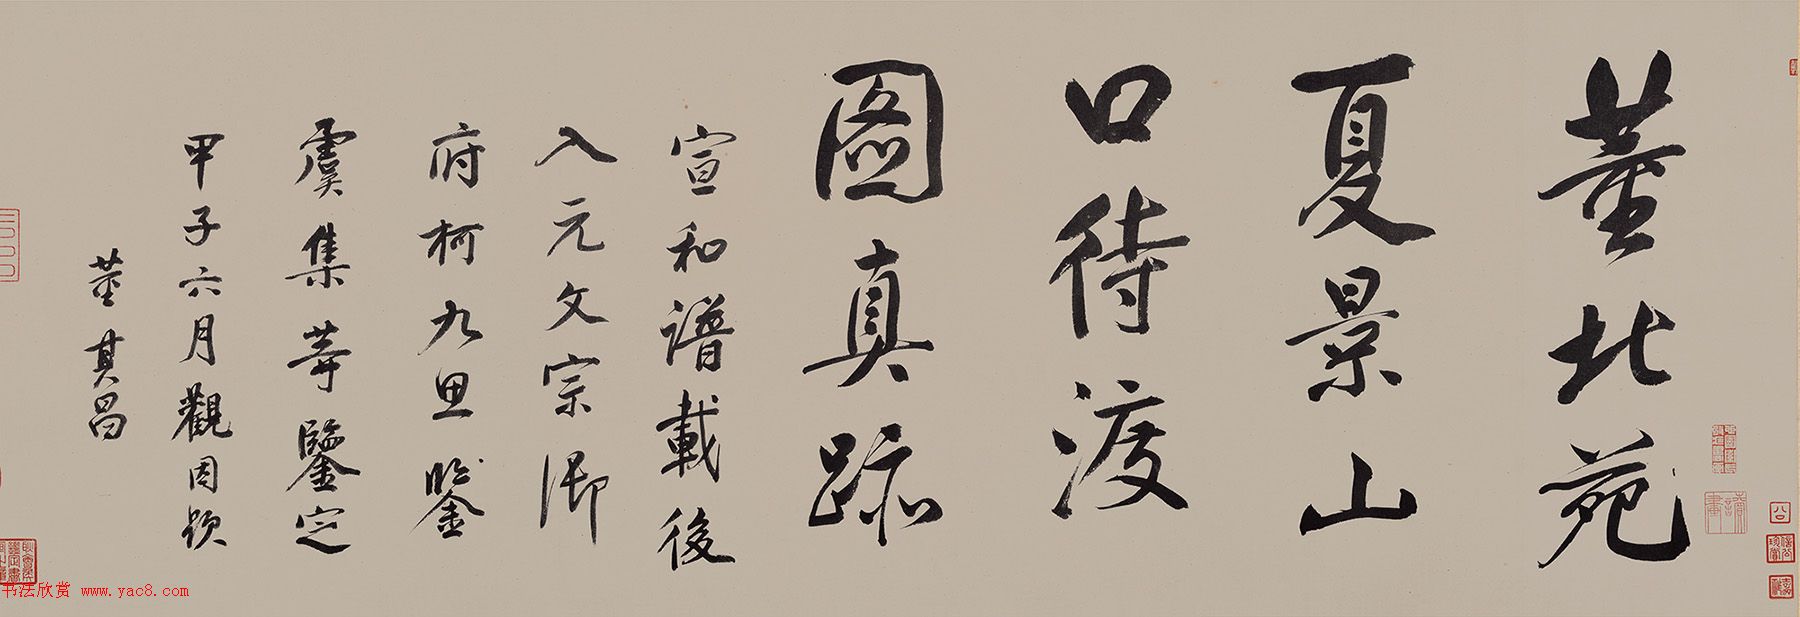 董北苑
夏景山
口待渡
圖真跡
宣和譜載後
入元文宗御
府柯九思鑒
虞集等鑒定
甲子六月觀因題
董其昌
书法欣赏 www.yac8.com